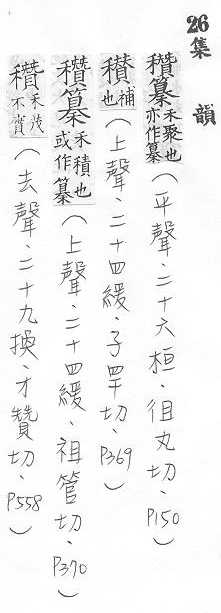 26集韻
穳䉵禾聚也亦作䉵(平聲、二十六桓、徂丸切、P150)
穳補也(上聲、二十四緩、子罕切、P369)
穳䉵禾積也或作䉵(上聲、二十四緩、祖管切、P370)
穳禾茂不實(去聲、二十九換、才贊切、P558)